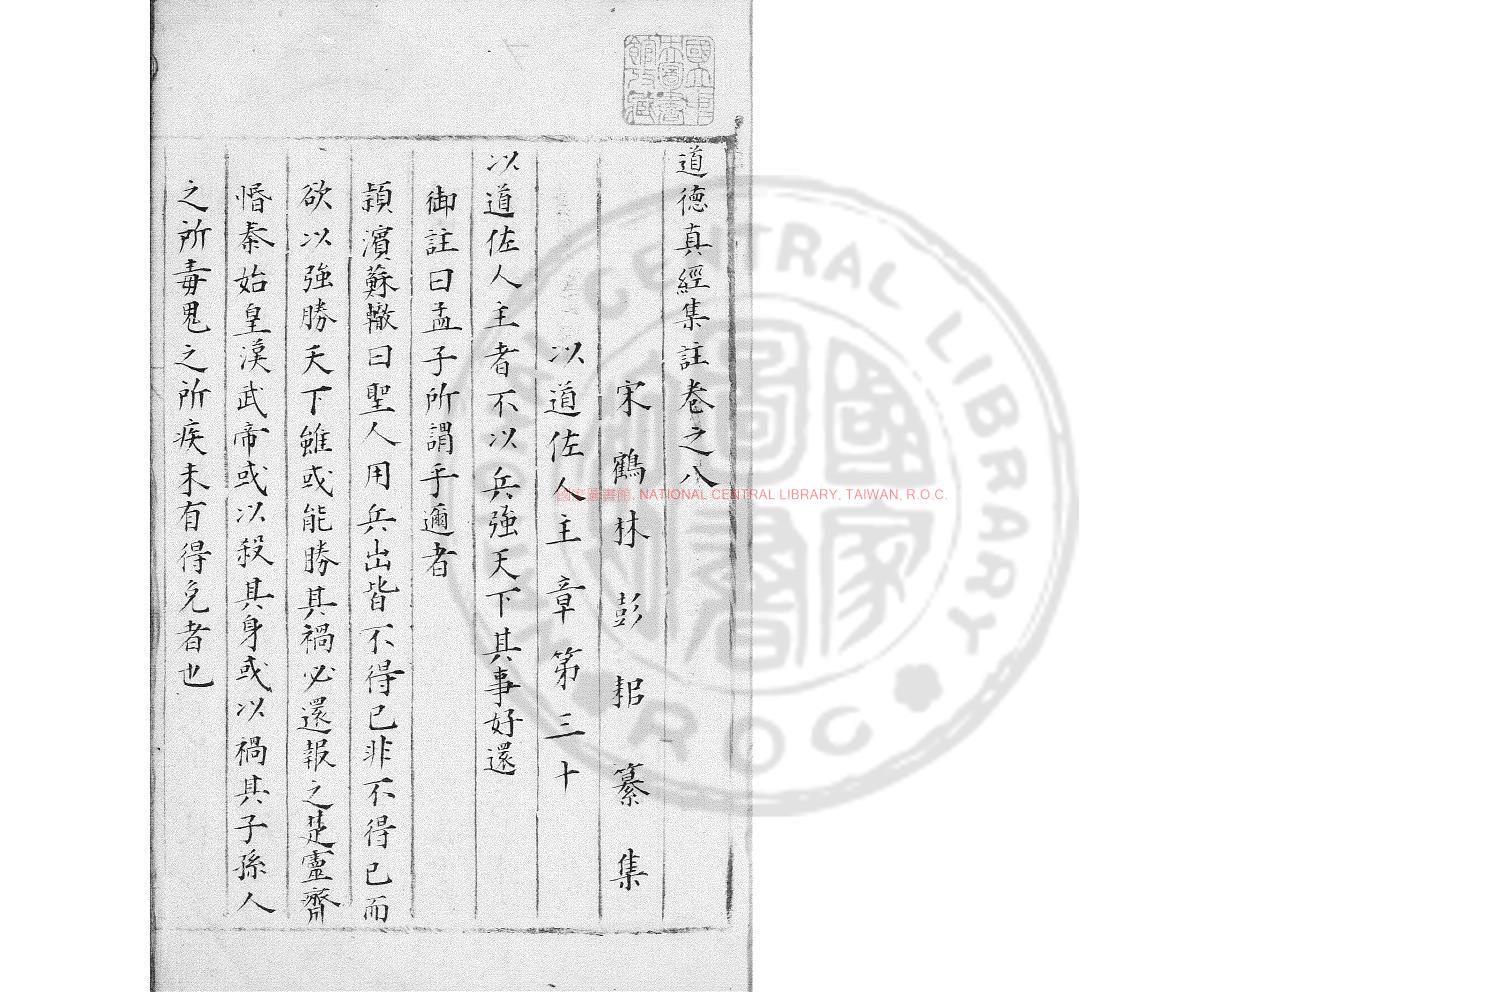 道德真經集註卷之八
宋鶴林彭耜纂集
以道佐人主章第三十
以道佐人主者不以兵強天下其事好還
御註曰孟子所謂乎邇者
頴濱蘇轍曰聖人用兵出皆不得已非不得已而
欲以強勝天下雖或能勝其禍必還報之楚靈齊
湣秦始皇漢武帝或以殺其身或以禍其子孫人
之所毒鬼之所疾未有得免者也
國家圖書館, NATIONAL CENTRAL LIBRARY, TAIWAN, R.O.C.
國立中央圖書館收藏
NATIONAL CENTRAL LIBRARY
ROC
國家圖書